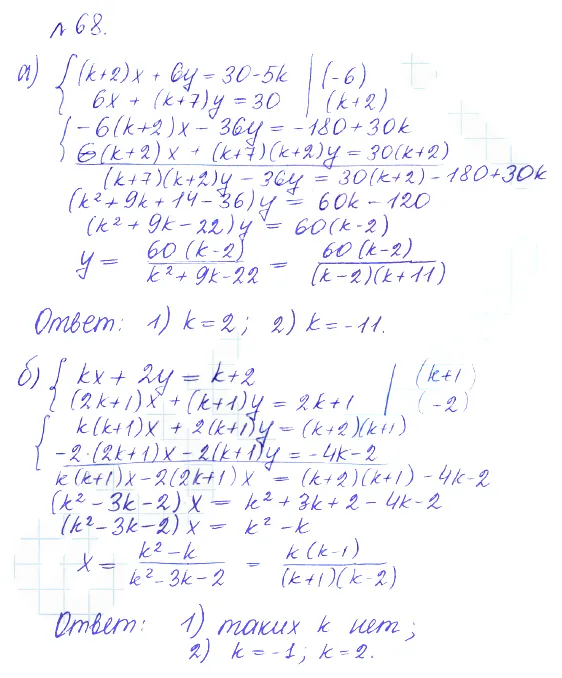 № 68.
а) { (k+2)x + 6y = 30-5k | (-6)
6x + (k+7)y = 30 | (k+2)
{ -6(k+2)x - 36y = -180+30k
6(k+2)x + (k+7)(k+2)y = 30(k+2)
(k+7)(k+2)y - 36y = 30(k+2) - 180+30k
(k² + 9k + 14 - 36)y = 60k - 120
(k² + 9k - 22)y = 60(k-2)
y = 60(k-2) / k² + 9k - 22 = 60(k-2) / (k-2)(k+11)
Ответ: 1) k = 2; 2) k = -11.
б) { kx + 2y = k+2 | (k+1)
(2k+1)x + (k+1)y = 2k+1 | (-2)
{ k(k+1)x + 2(k+1)y = (k+2)(k+1)
-2·(2k+1)x - 2(k+1)y = -4k-2
k(k+1)x - 2(2k+1)x = (k+2)(k+1) - 4k-2
(k² - 3k - 2)x = k² + 3k + 2 - 4k - 2
(k² - 3k - 2)x = k² - k
x = k² - k / k² - 3k - 2 = k(k-1) / (k+1)(k-2)
Ответ: 1) таких k нет;
2) k = -1; k = 2.